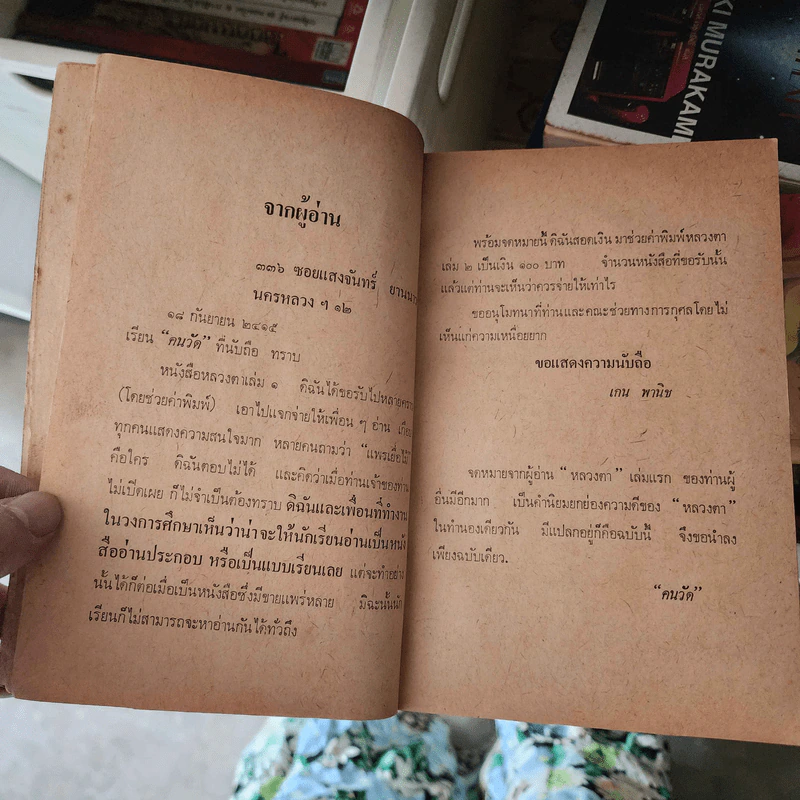 จากผู้อ่าน
๓๓๖ ซอยแสงจันทร์ ยานนาวา
นครหลวง ฯ ๑๒
๑๘ กันยายน ๒๔๑๕
เรียน “คนวัด” ที่นับถือ ทราบ
หนังสือหลวงตาเล่ม ๑ ดิฉันได้ขอรับไปหลายครา
(โดยช่วยค่าพิมพ์) เอาไปแจกจ่ายให้เพื่อน ๆ อ่าน
ทุกคนแสดงความสนใจมาก หลายคนถามว่า “แพรเยื่อไม้
คือใคร ดิฉันตอบไม่ได้ และคิดว่าเมื่อท่านเจ้าของนาม
ไม่เปิดเผย ก็ไม่จำเป็นต้องทราบ ดิฉันและเพื่อนที่ทำงาน
ในวงการศึกษาเห็นว่าน่าจะให้นักเรียนอ่านเป็นหนัง
สืออ่านประกอบ หรือเป็นแบบเรียนเลย แต่จะทำอย่าง
นั้นได้ก็ต่อเมื่อเป็นหนังสือซึ่งมีขายแพร่หลาย มิฉะนั้นนัก
เรียนก็ไม่สามารถจะหาอ่านกันได้ทั่วถึง
พร้อมจดหมายนี้ ดิฉันสอดเงิน มาช่วยค่าพิมพ์หลวงตา
เล่ม ๒ เป็นเงิน ๑๐๐ บาท จำนวนหนังสือที่ขอรับนั้น
แล้วแต่ท่านจะเห็นว่าควรจ่ายให้เท่าไร
ขออนุโมทนาที่ท่านและคณะช่วยทางการกุศลโดยไม่
เห็นแก่ความเหนื่อยยาก
ขอแสดงความนับถือ
เกน พานิช
จดหมายจากผู้อ่าน “หลวงตา” เล่มแรก ของท่านผู้
อื่นมีอีกมาก เป็นคำนิยมยกย่องความดีของ “หลวงตา”
ในทำนองเดียวกัน มีแปลกอยู่ก็คือฉบับนี้ จึงขอนำลง
เพียงฉบับเดียว.
“คนวัด”
KI MURAKAMI